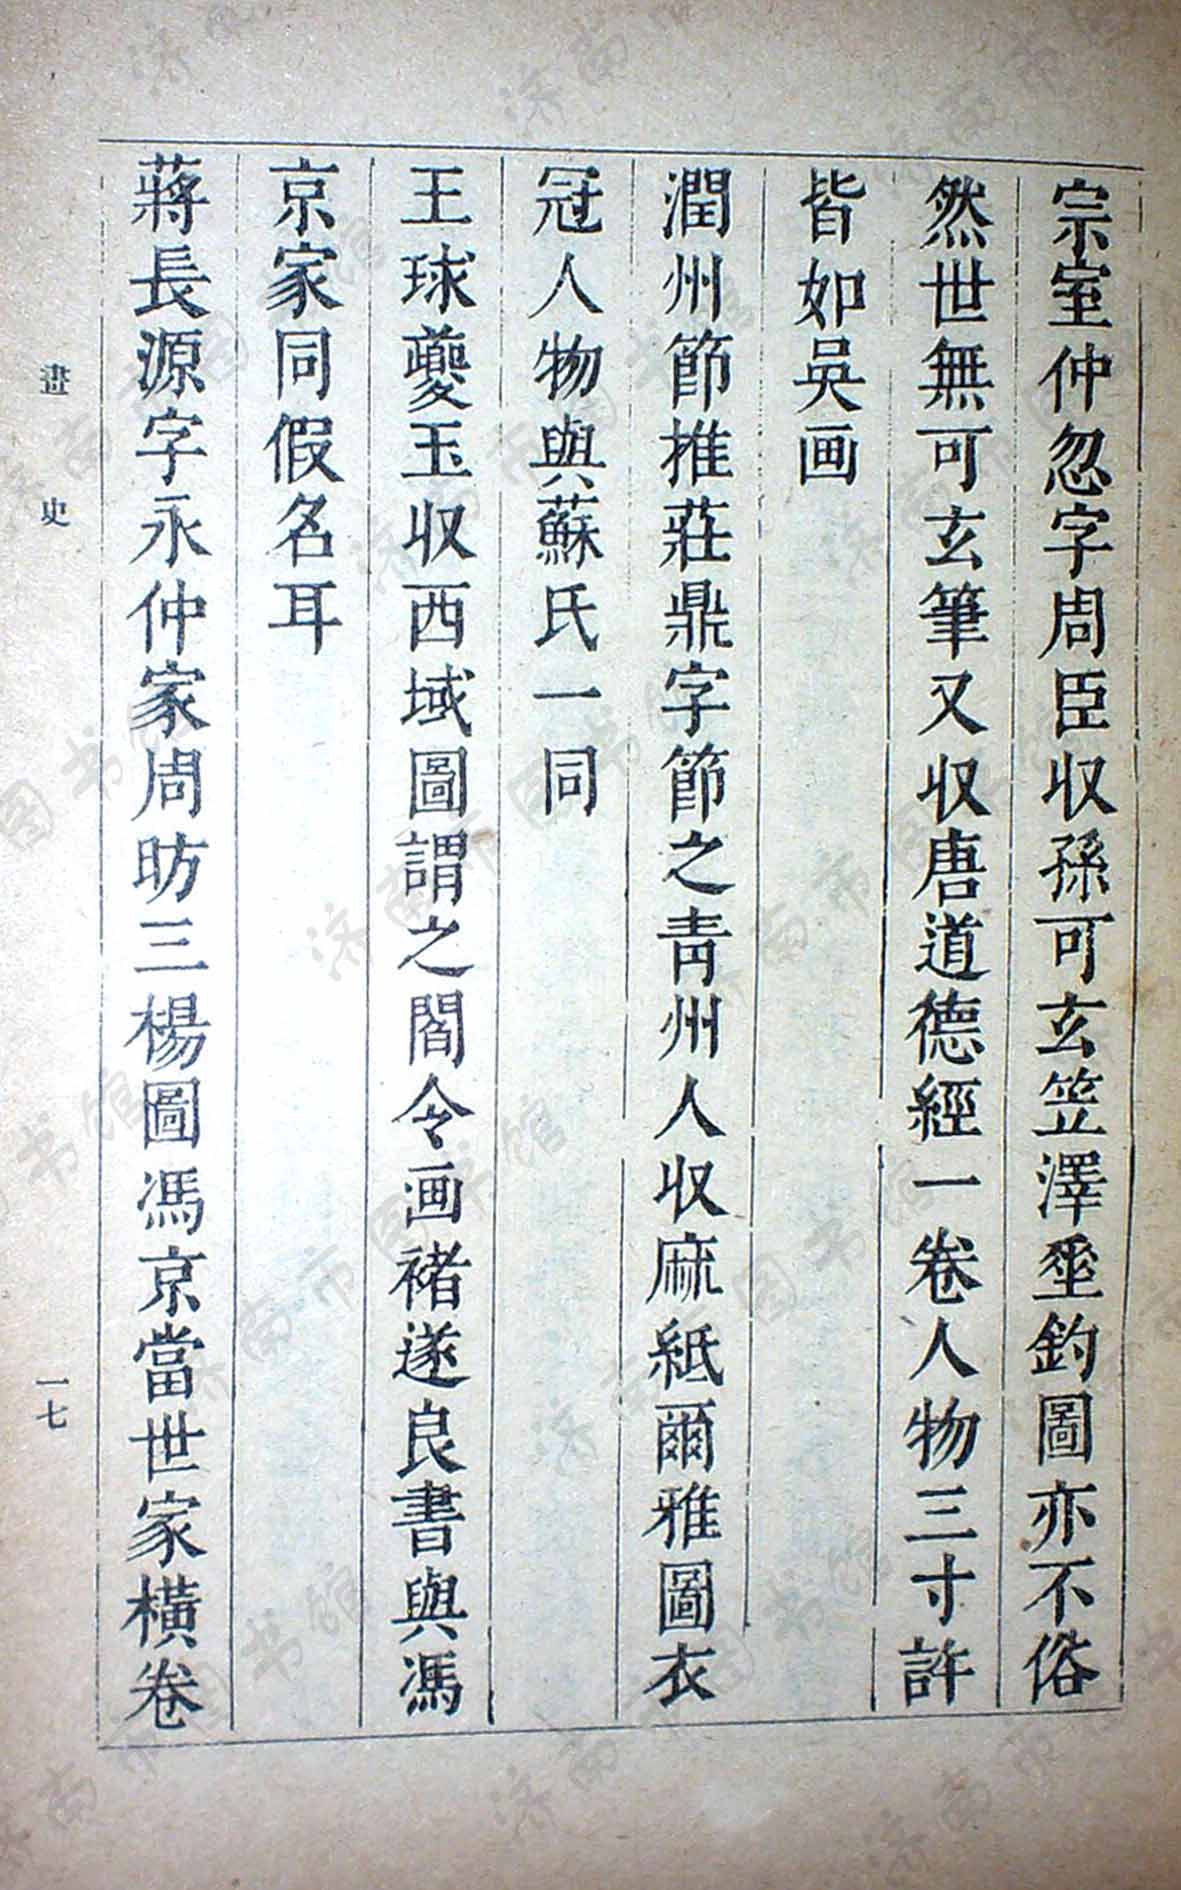 宗室仲忽字周臣収孫可玄笠澤垂釣圖亦不俗
然世無可玄筆又収唐道德經一卷人物三寸許
皆如吳画
潤州節推莊鼎字節之青州人収麻紙爾雅圖衣
冠人物與蘇氏一同
王球夔玉収西域圖謂之閻令画褚遂良書與馮
京家同假名耳
蔣長源字永仲家周昉三楊圖馮京當世家橫卷
畫史
一七
济南市图书馆